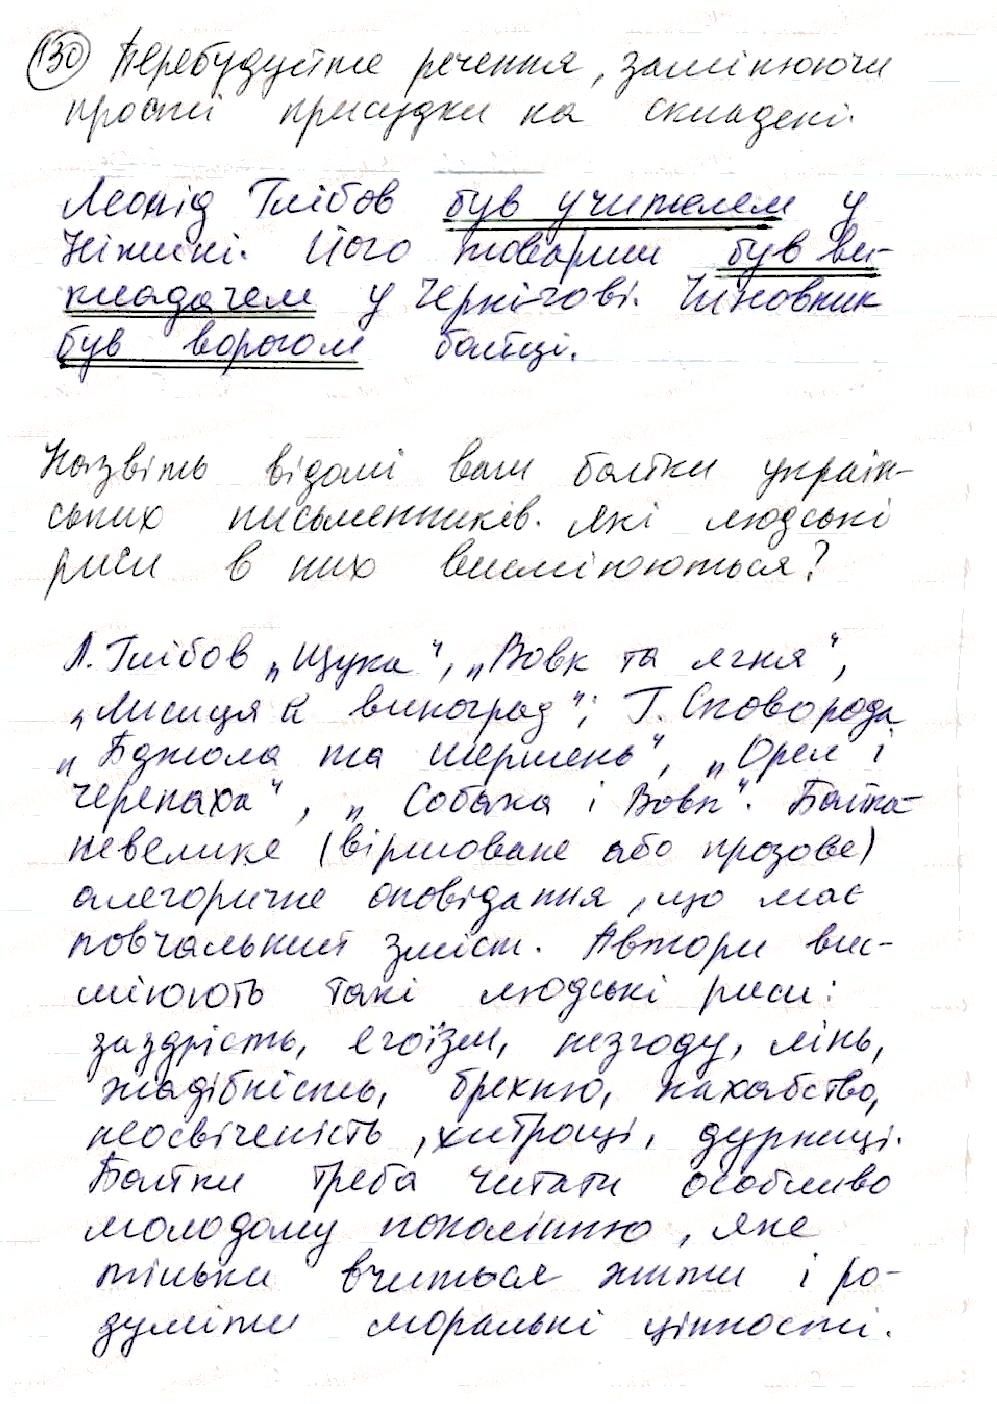 130 Перебудуйте речення, замінюючи
прості присудки на складені.
Леонід Глібов був учителем у
Ніжині. Його товариш був ви-
кладачем у Чернігові. Чиновник
був ворогом байці.
Назвіть відомі вам байки україн-
ських письменників. Які людські
риси в них висміюються?
Л. Глібов „Щука", „Вовк та ягня",
„Лисиця й виноград"; Г. Сковорода
„Бджола та шершень", „Орел і
Черепаха", „Собака і Вовк". Байка-
невелике (віршоване або прозове)
алегоричне оповідання, що має
повчальний зміст. Автори вис-
міюють такі людські риси:
заздрість, егоїзм, незгоду, лінь,
жадібність, брехню, нахабство,
неосвіченість, хитрощі, дурниці.
Байки треба читати особливо
молодому поколінню, яке
тільки вчиться жити і ро-
зуміти моральні цінності.